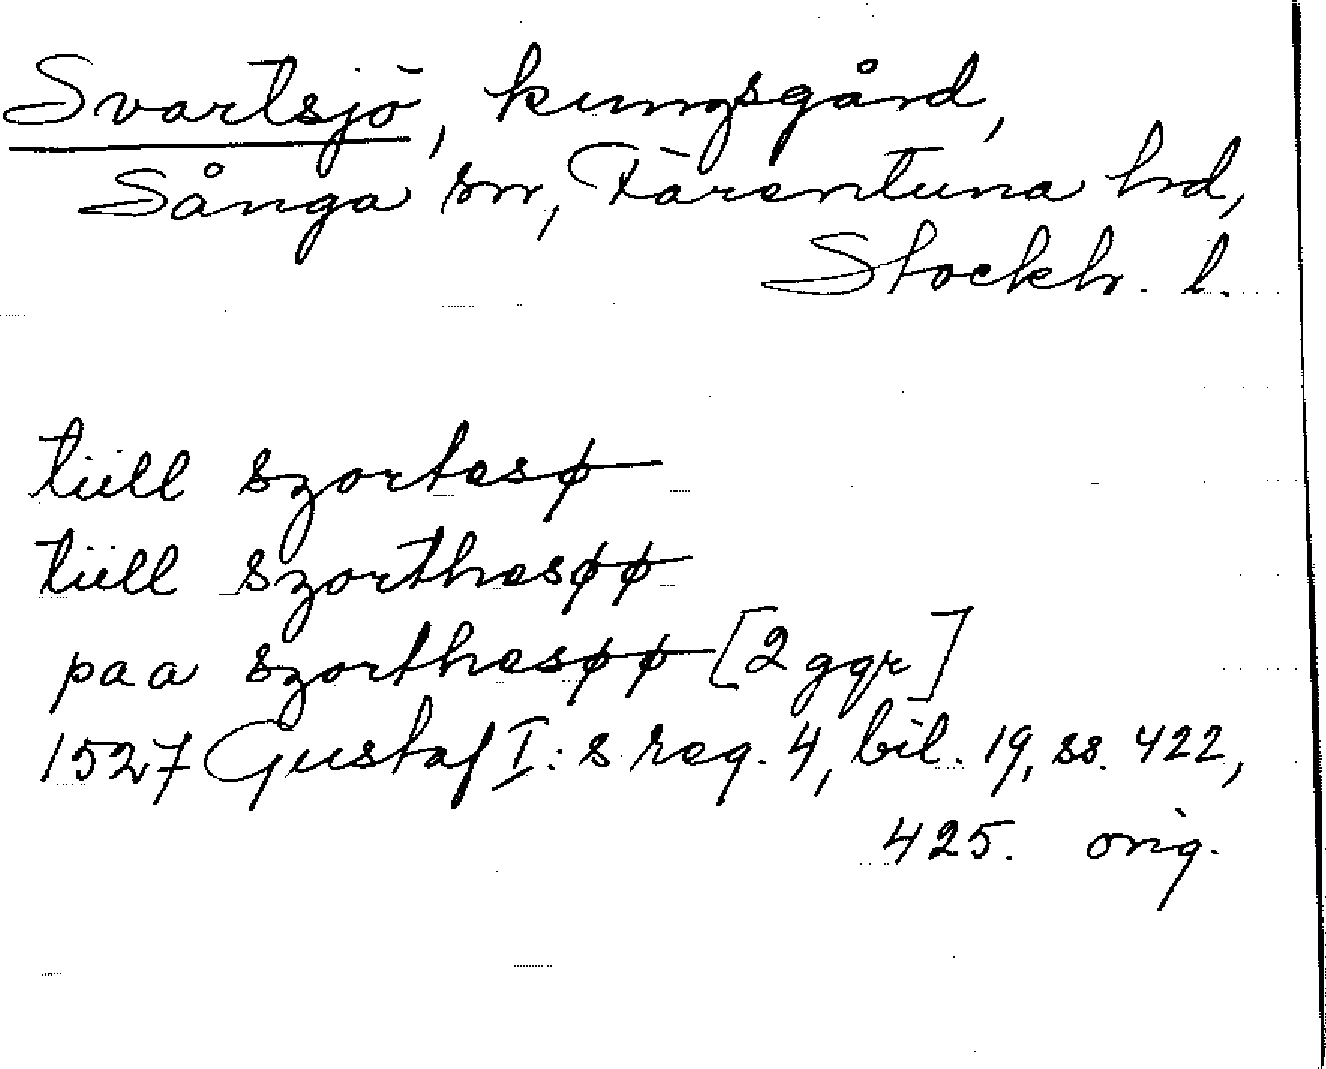 Svartsjö, kungsgård,
Sånga sn, Färentuna hd,
Stockh. l.
tiill szortesø
tiill szorthesøø
paa szorthesøø [2 ggr]
1527 Gustaf I:s reg. 4, bil. 19, ss. 422,
425. orig.